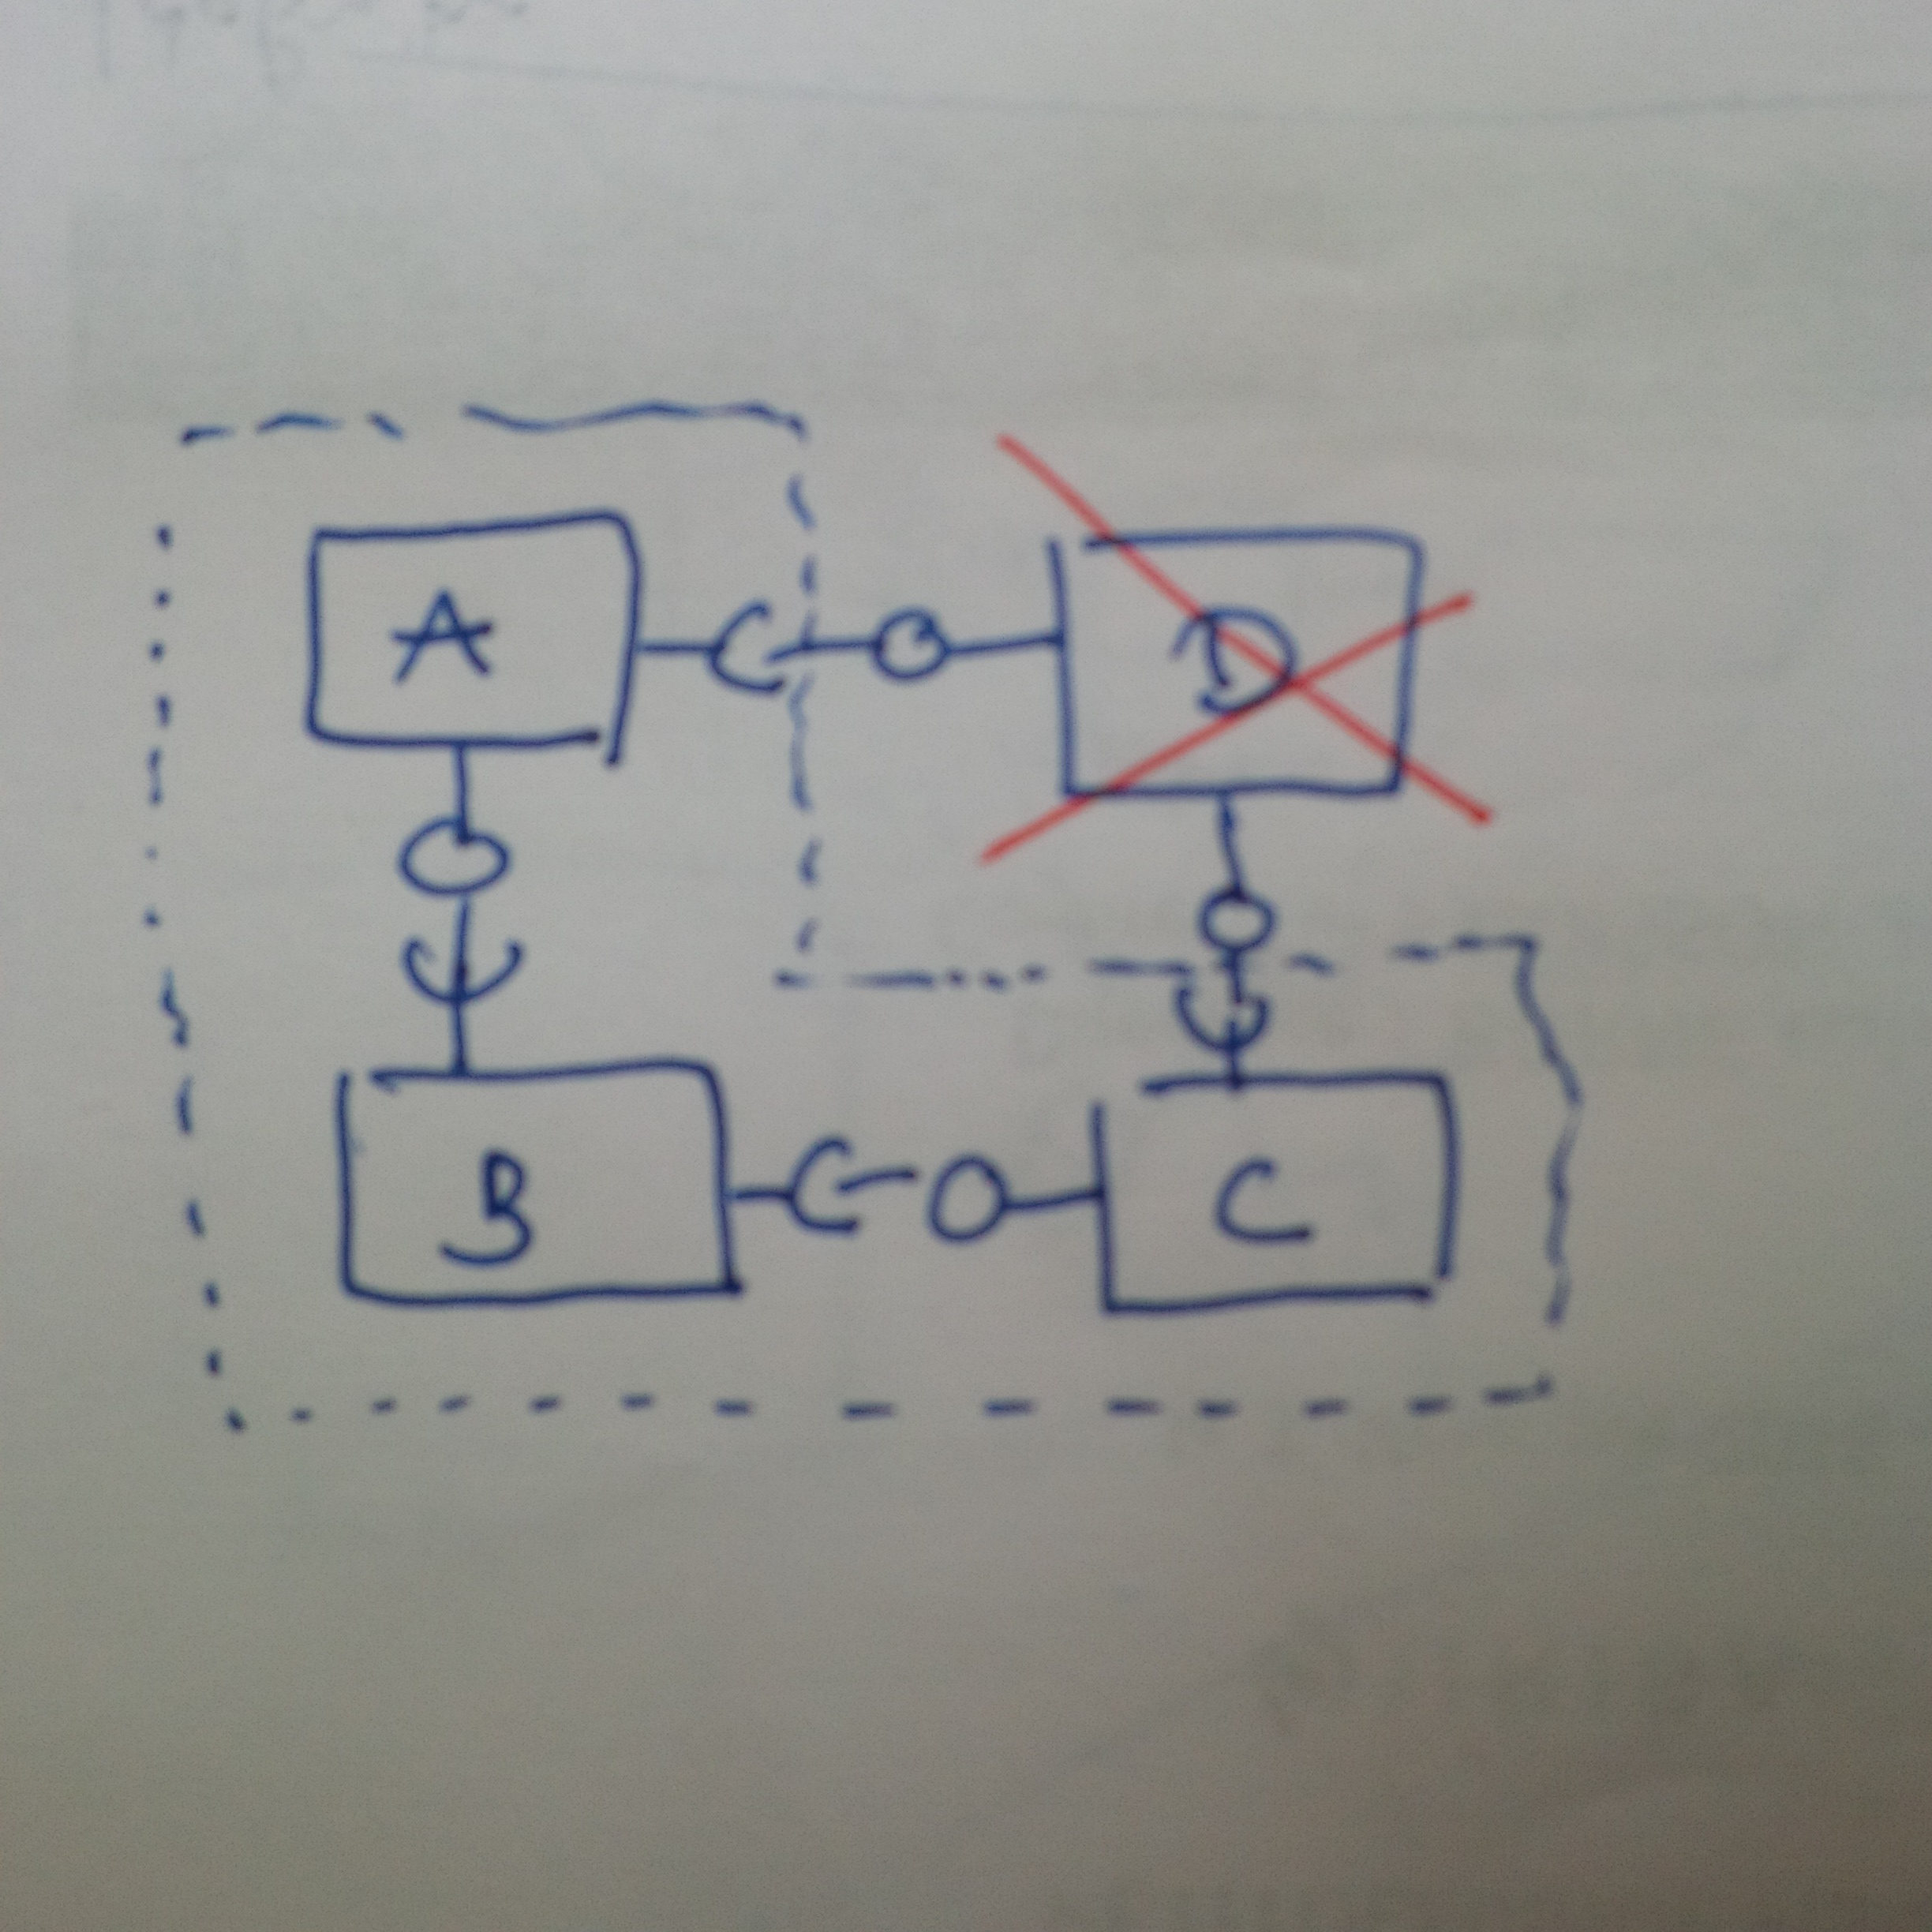 A
D
B
C